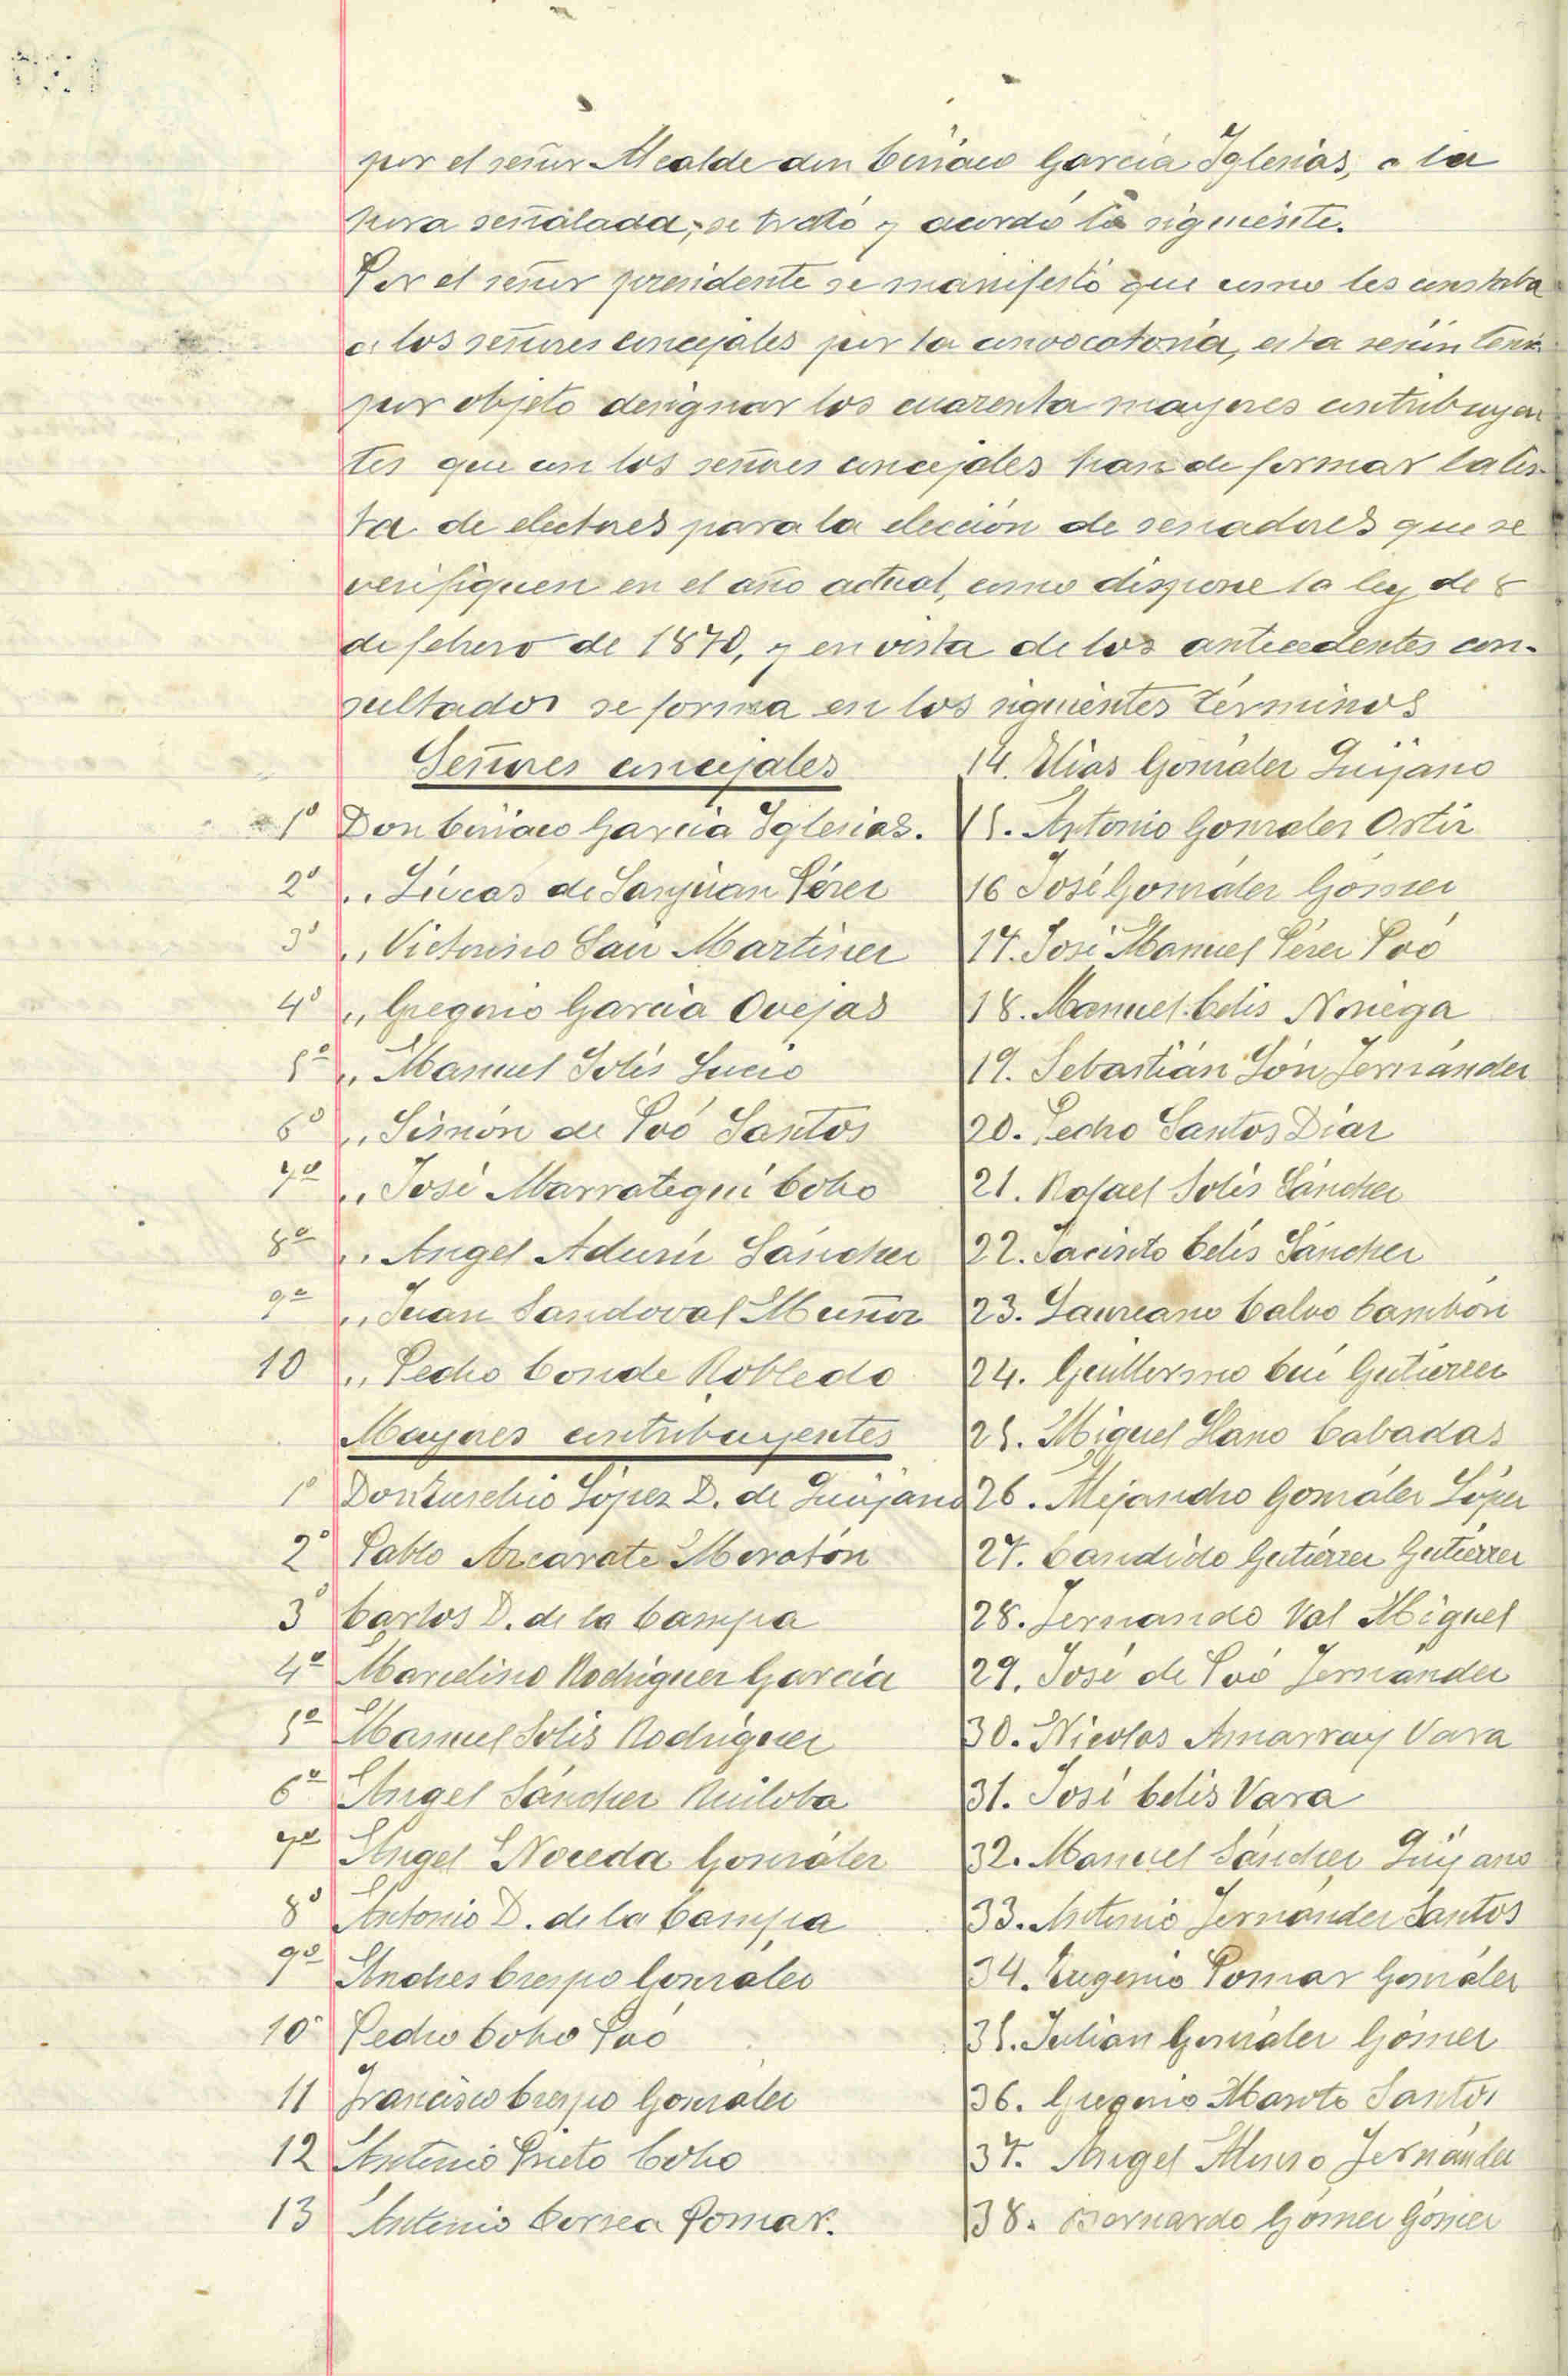 por el señor Alcalde don Ciriaco García Iglesias, a la
hora señalada, se trató y acordó lo siguiente.
Por el señor presidente se manifestó que como les constaba
a los señores concejales por la convocatoria, esta sesión tenía
por objeto designar los cuarenta mayores contribuyen
tes que con los señores concejales han de formar la lis-
ta de electores para la elección de senadores que se
verifiquen en el año actual, como dispone la ley de 8
de febrero de 1870, y en vista de los antecedentes con-
sultados se forma en los siguientes términos
Señores concejales
1º Don Ciriaco García Iglesias.
2º „ Lúcas de Sanjuan Pérez
3º „ Victorino San Martinez
4º „ Gregorio García Ovejas
5º „ Manuel Solís Lucio
6º „ Simón de Poó Santos
7º „ José Marrategui Coho
8º „ Angel Sánchez
9º „ Juan Sandoval Muñoz
10 „ Pedro Conde Robledo
Mayores contribuyentes
1º Don Eusebio López D. de Quijano
2º Pablo Azcarate Moratón
3º Carlos D. de la Campa
4º Marcelino Rodriguez García
5º Manuel Solis Rodriguez
6º Angel Sánchez Ruiloba
7º Angel Noceda González
8º Antonio D. de la Campa
9º Andres Crespo González
10º Pedro Coho Poó
11 Francisco Crespo González
12 Antonio Prieto Coho
13 Antonio Correa Pomar.
14. Elías González Quijano
15. Antonio González Ortiz
16 José González Gómez
17. José Manuel Pérez Poó
18. Manuel Celis Noriega
19. Sebastián Fernández
20. Pedro Santos Díaz
21. Rafael Solís Sánchez
22. Jacinto Celis Sánchez
23. Laureano Calvo Cambón
24. Guillermo Cué Gutierrez
25. Miguel Llano Cabadas
26. Alejandro González López
27. Cándido Gutiérrez Gutiérrez
28. Fernando Val Miguel
29. José de Poó Fernández
30. Nicolas Vara
31. José Celis Vara
32. Manuel Sánchez Quijano
33. Antonio Fernández Santos
34. Eugenio Pomar González
35. Julian González Gómez
36. Gregorio Santos
37. Angel Alonso Fernández
38. Bernardo Gómez Gómez